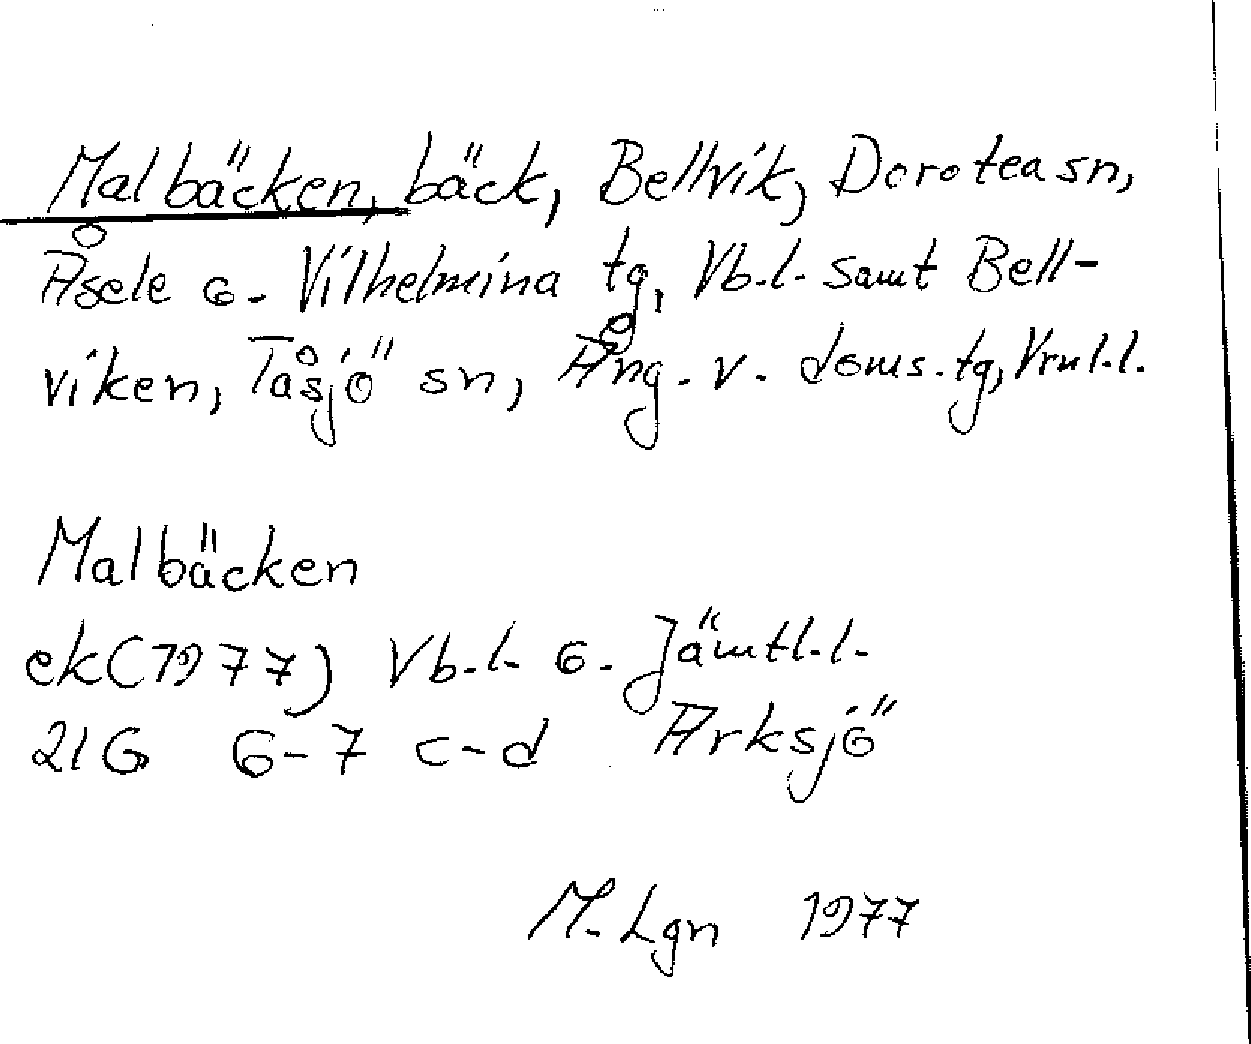 Malbäcken, bäck, Bellvik, Dorotea sn,
Åsele o. Vilhelmina tg, Vb.l. samt Bell-
viken, Tåsjö sn, Ång. v. doms. tg, Vrnl.l.
Malbäcken
ek(1977) Vb.l. o. Jämtl.l.
21G 6-7 c-d Arksjö
M. Lgn 1977